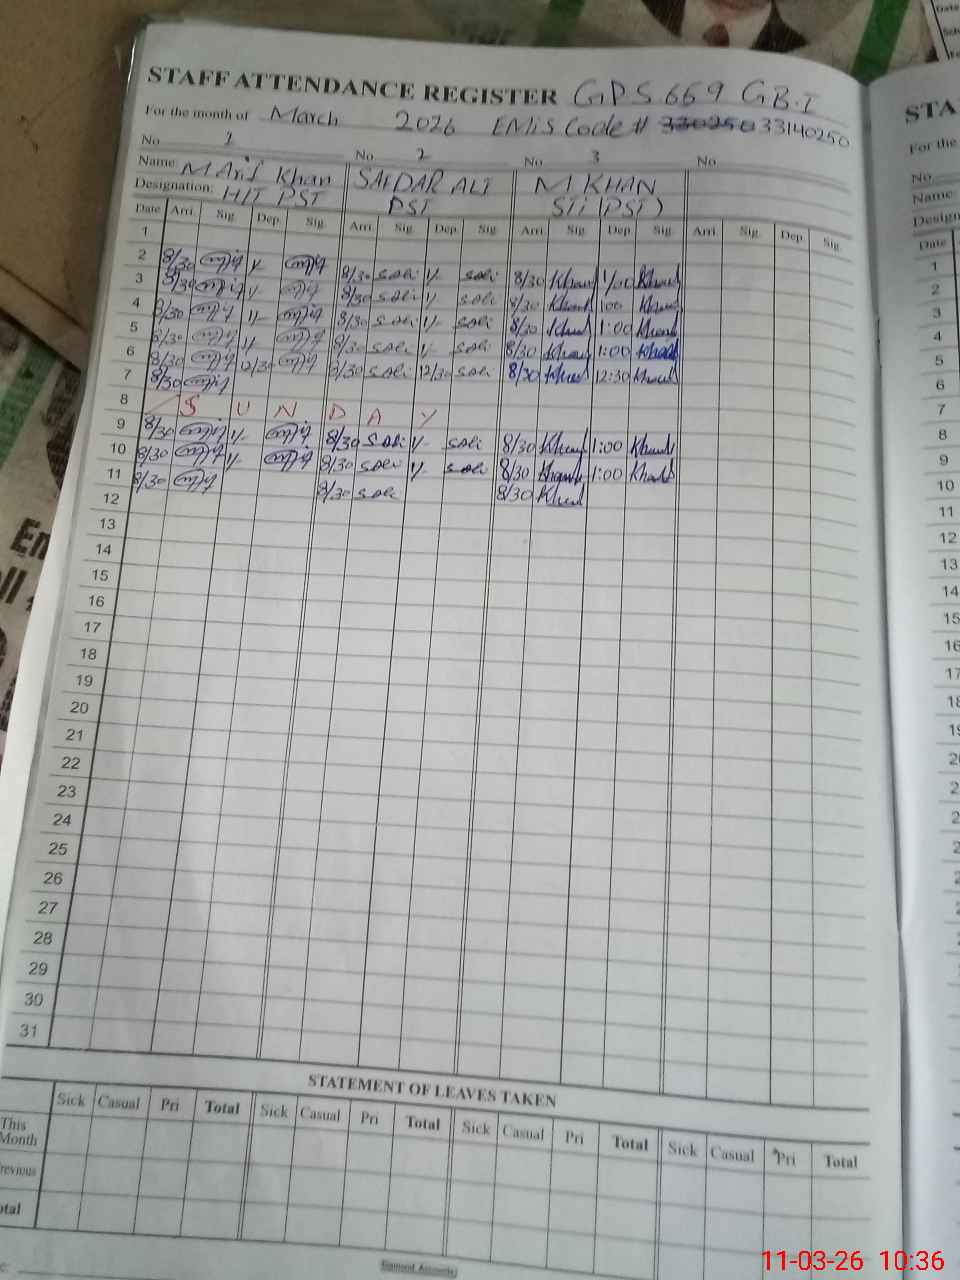 STAFF ATTENDANCE REGISTER GPS 669 GB.I
For the month of March 2026 EMis Code # 33140250
No 1 No 2 No 3 No
Name: M Arif Khan SAFDAR ALI M. KHAN
Designation: H/T PST PST STi (PST)
Date Arri. Sig. Dep. Sig. Arri. Sig. Dep. Sig. Arri. Sig. Dep. Sig. Arri. Sig. Dep. Sig.
1
2 8/30 1/- 8/30 sali 1/- sali 8/30 Khan 1/00 Khan
3 8/30 1/- 8/30 sali 1/- sali 8/30 Khan 1:00 Khan
4 8/30 1/- 8/30 sali 1/- sali 8/30 Khan 1:00 Khan
5 8/30 1/- 8/30 sali 1/- sali 8/30 Khan 1:00 Khan
6 8/30 12/30 8/30 sali 12/30 sali 8/30 Khan 12:30 Khan
7 8/30
8 S U N D A Y
9 8/30 1/- 8/30 sali 1/- sali 8/30 Khan 1:00 Khan
10 8/30 1/- 8/30 sali 1/- sali 8/30 Khan 1:00 Khan
11 8/30 8/30 sali 8/30 Khan
12
13
14
15
16
17
18
19
20
21
22
23
24
25
26
27
28
29
30
31
STATEMENT OF LEAVES TAKEN
Sick Casual Pri Total Sick Casual Pri Total Sick Casual Pri Total Sick Casual Pri Total
This Month
revious
otal
STA
For the
No
Name:
Design
Date
1
2
3
4
5
6
7
8
9
10
11
12
13
14
15
16
17
18
11-03-26 10:36